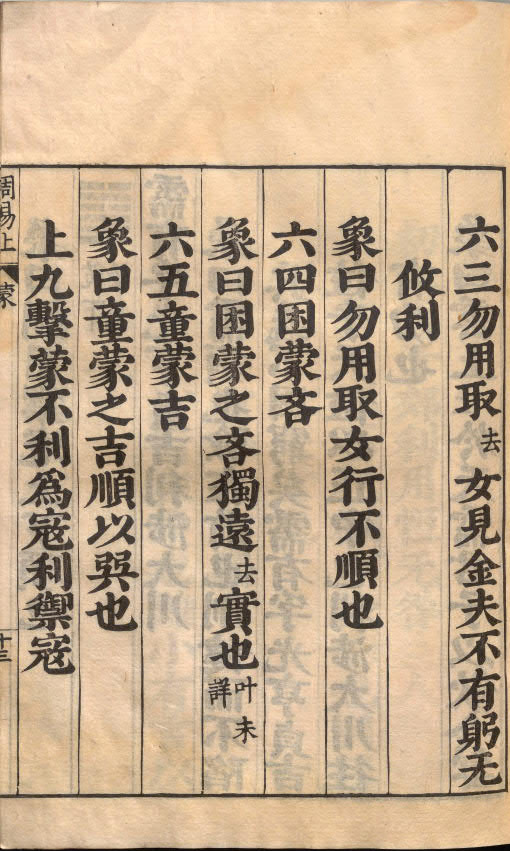 六三勿用取去女見金夫不有躬无
攸利
象曰勿用取女行不順也
六四困蒙吝
象曰困蒙之吝獨遠去實也叶未詳
六五童蒙吉
象曰童蒙之吉順以巽也
上九擊蒙不利爲寇利禦寇
周易上
蒙
十三